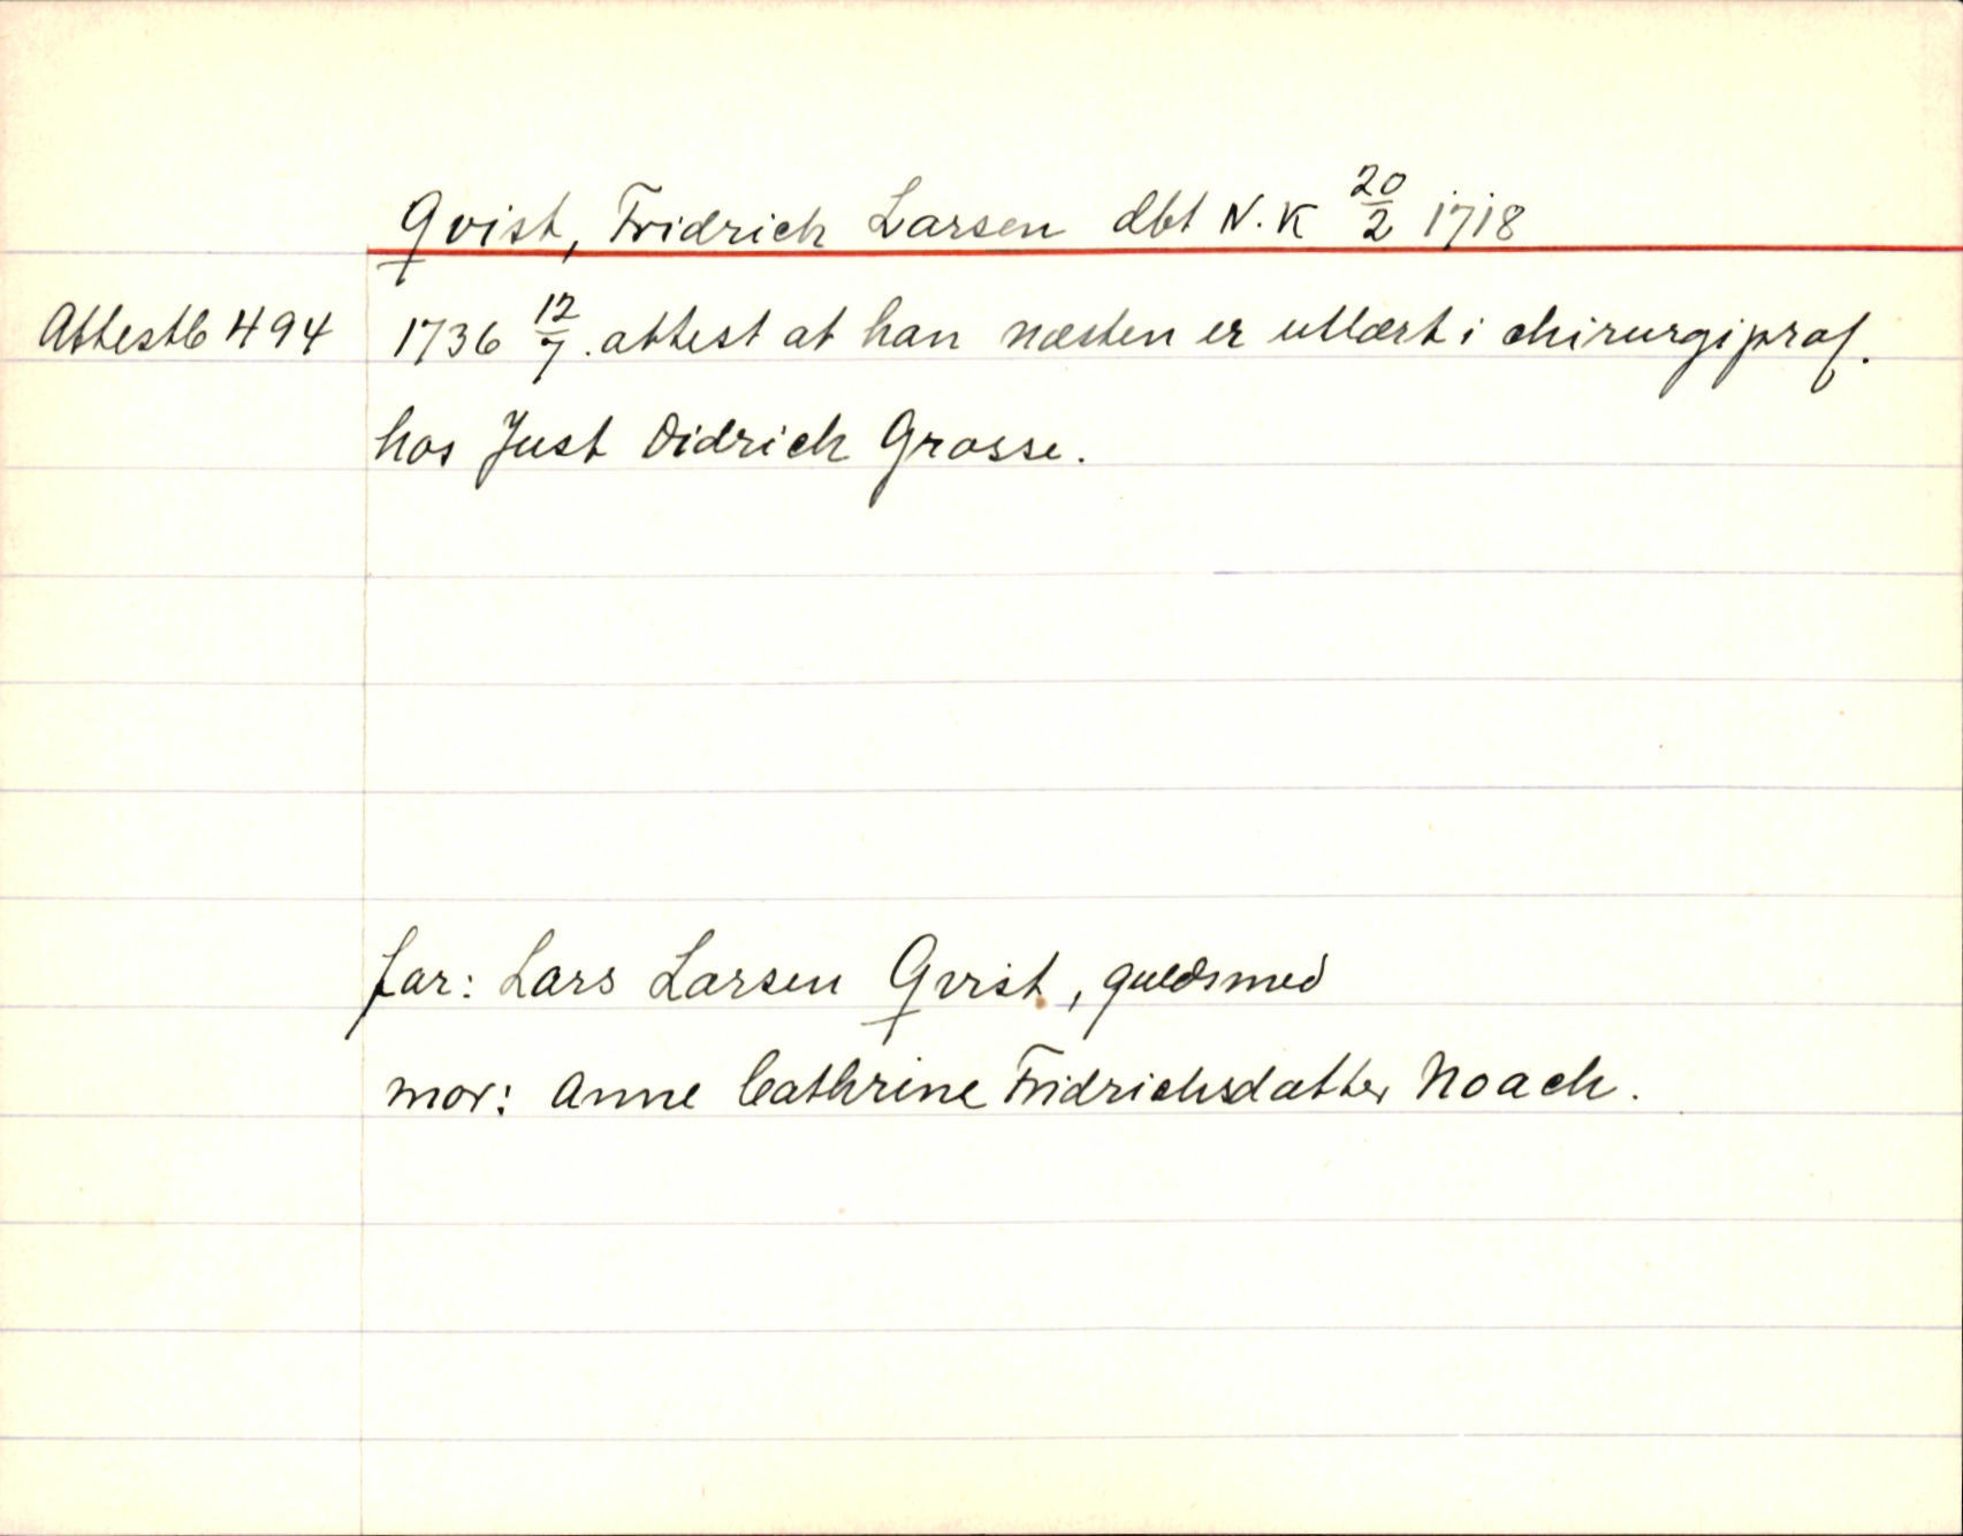 Qvist, Fridrich Larsen dbt N.K 20/2 1718
Attestb 494 1736 12/7. attest at han næsten er utlært i chirurgiprof.
hos Just Didrich Grosse.
far: Lars Larsen Qvist, guldsmed
mor: Anne Cathrine Fridrichsdatter Noach.